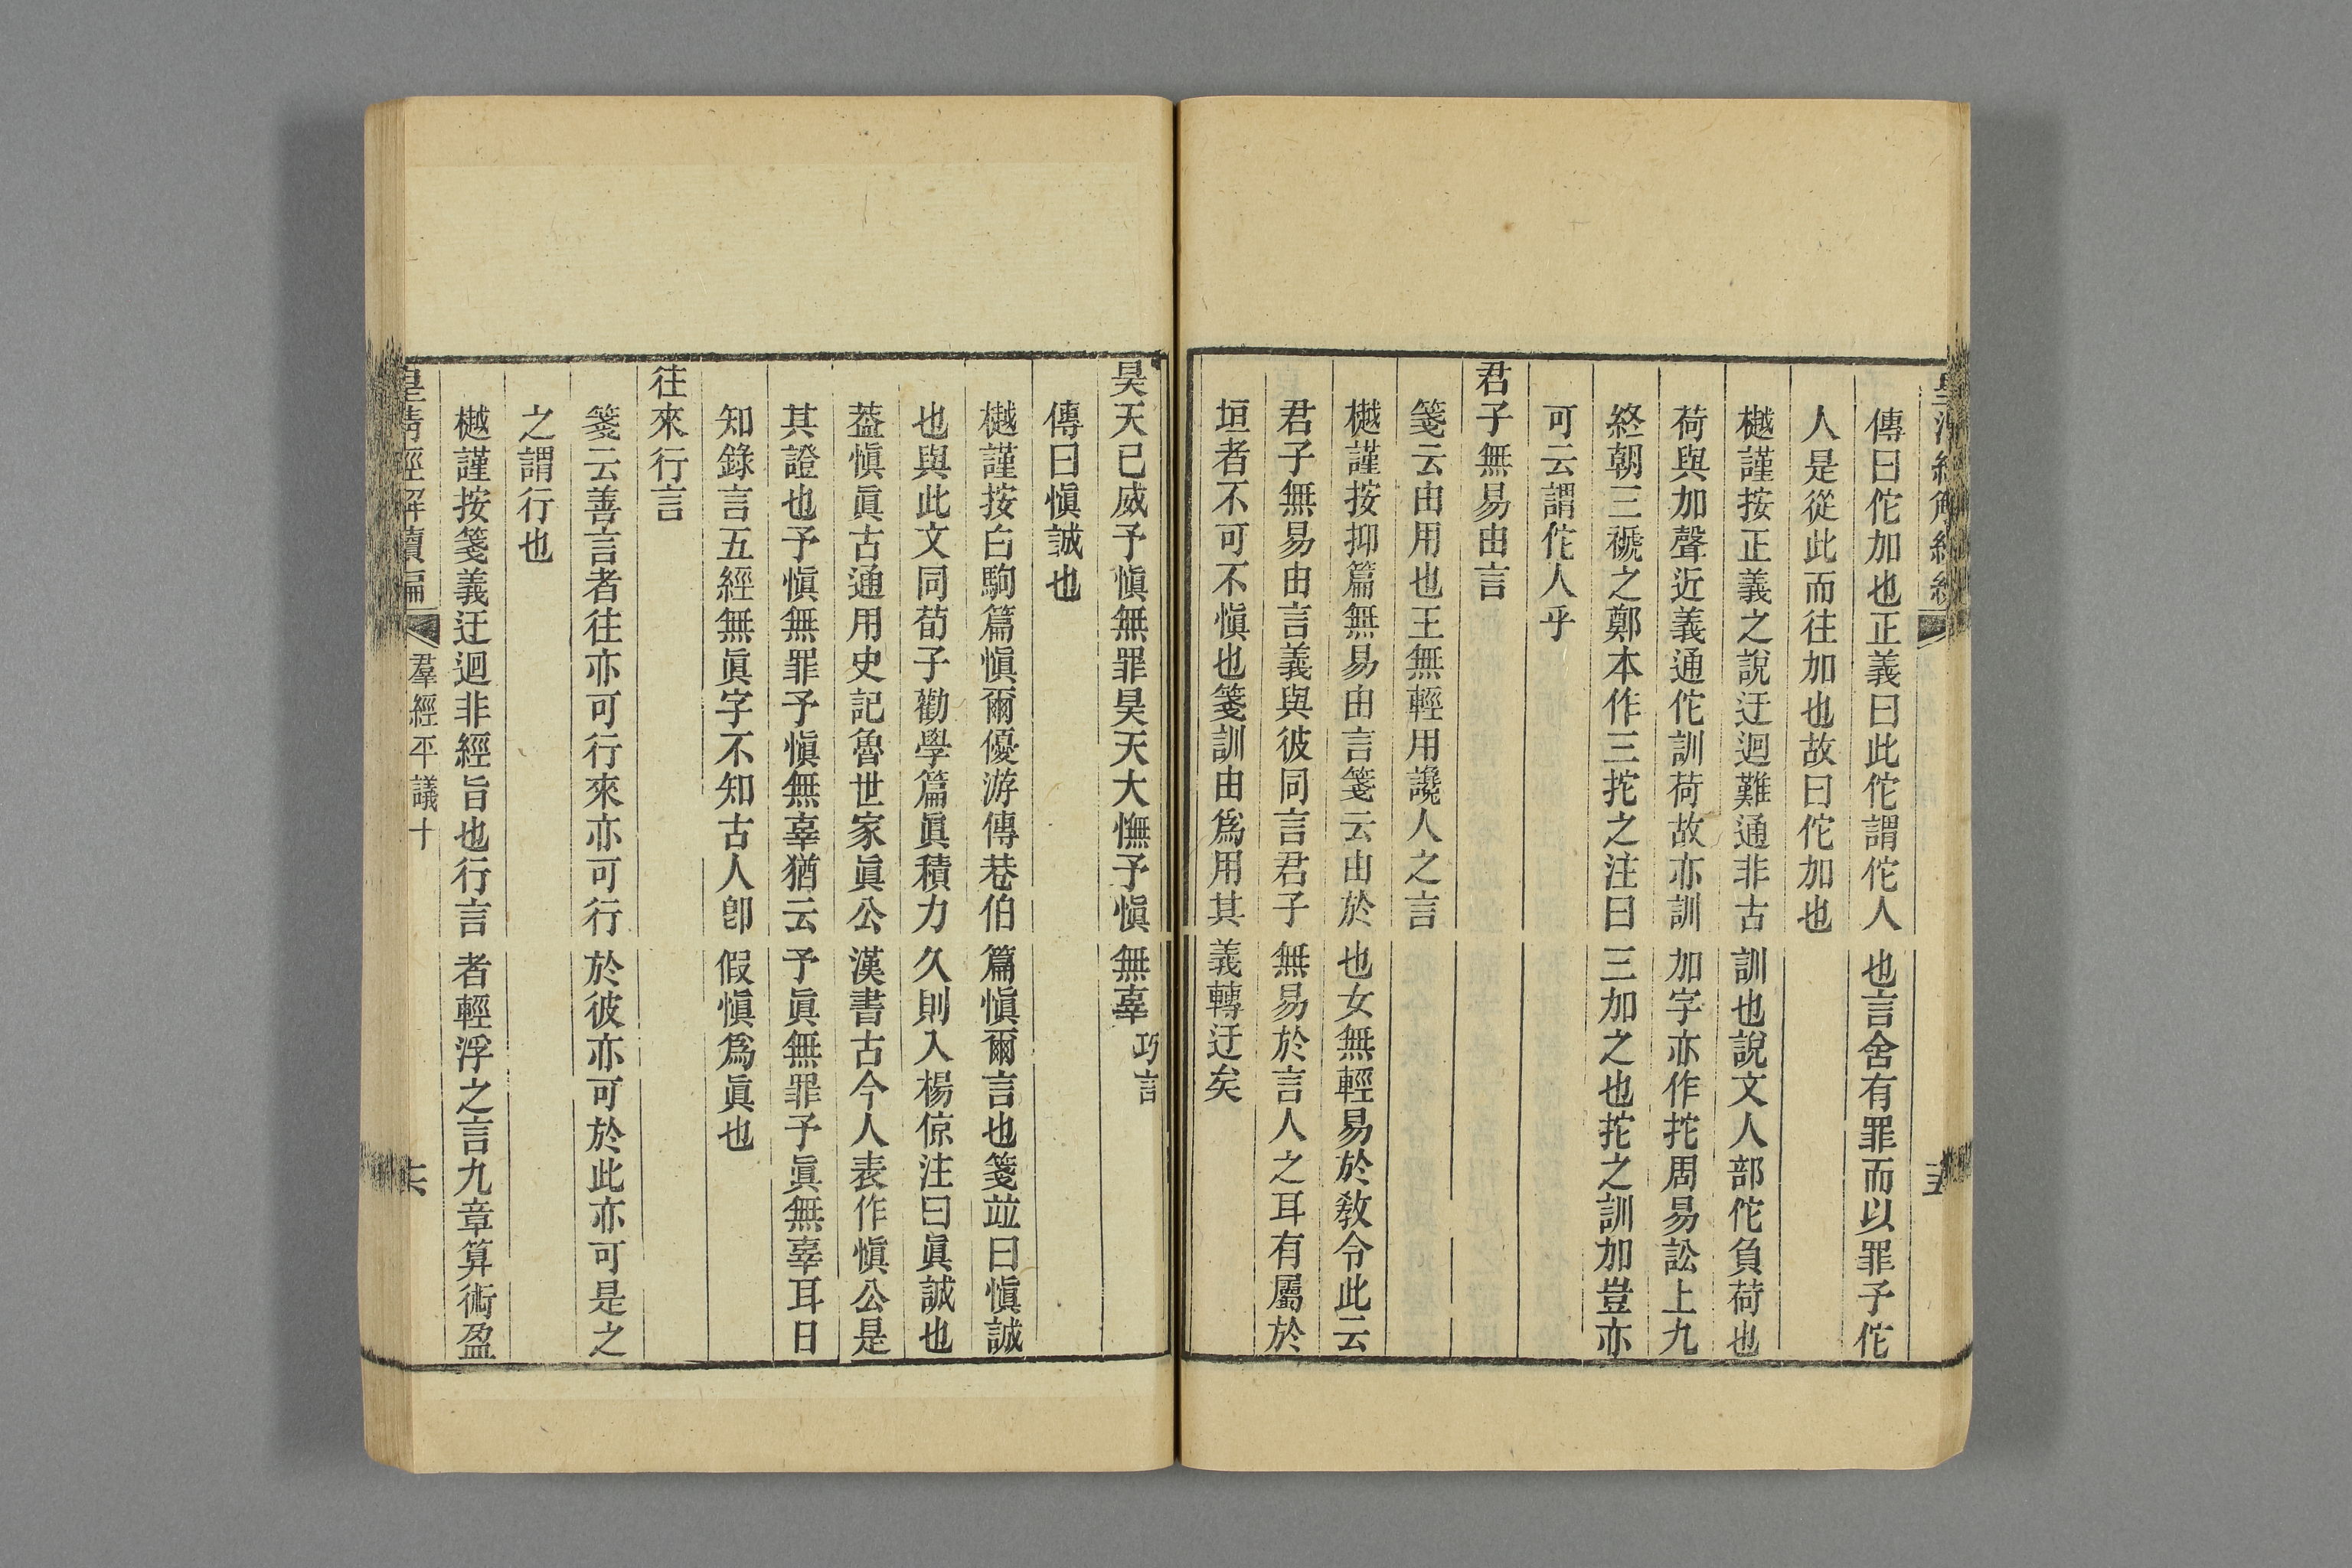 傳曰佗加也正義曰此佗謂佗人也言舍有罪而以罪予佗
人是從此而往加也故曰佗加也
樾謹按正義之說迂迴難通非古訓也說文人部佗負荷也
荷與加聲近義通佗訓荷故亦訓加字亦作拕周易訟上九
終朝三褫之鄭本作三拕之注曰三加之也拕之訓加豈亦
可云謂佗人乎
君子無易由言
箋云由用也王無輕用讒人之言
樾謹按抑篇無易由言箋云由於也女無輕易於敎令此云
君子無易由言義與彼同言君子無易於言人之耳有屬於
垣者不可不愼也箋訓由爲用其義轉迂矣
昊天已威予愼無罪昊天大憮予愼無辜巧言
傳曰愼誠也
樾謹按白駒篇愼爾優游傳巷伯篇愼爾言也箋竝曰愼誠
也與此文同荀子勸學篇眞積力久則入楊倞注曰眞誠也
葢愼眞古通用史記魯世家眞公漢書古今人表作愼公是
其證也予愼無罪予愼無辜猶云予眞無罪予眞無辜耳日
知錄言五經無眞字不知古人卽假愼爲眞也
往來行言
箋云善言者往亦可行來亦可行於彼亦可於此亦可是之
之謂行也
樾謹按箋義迂迴非經旨也行言者輕浮之言九章算術盈
皇淸經解續編 羣經平議十 十六